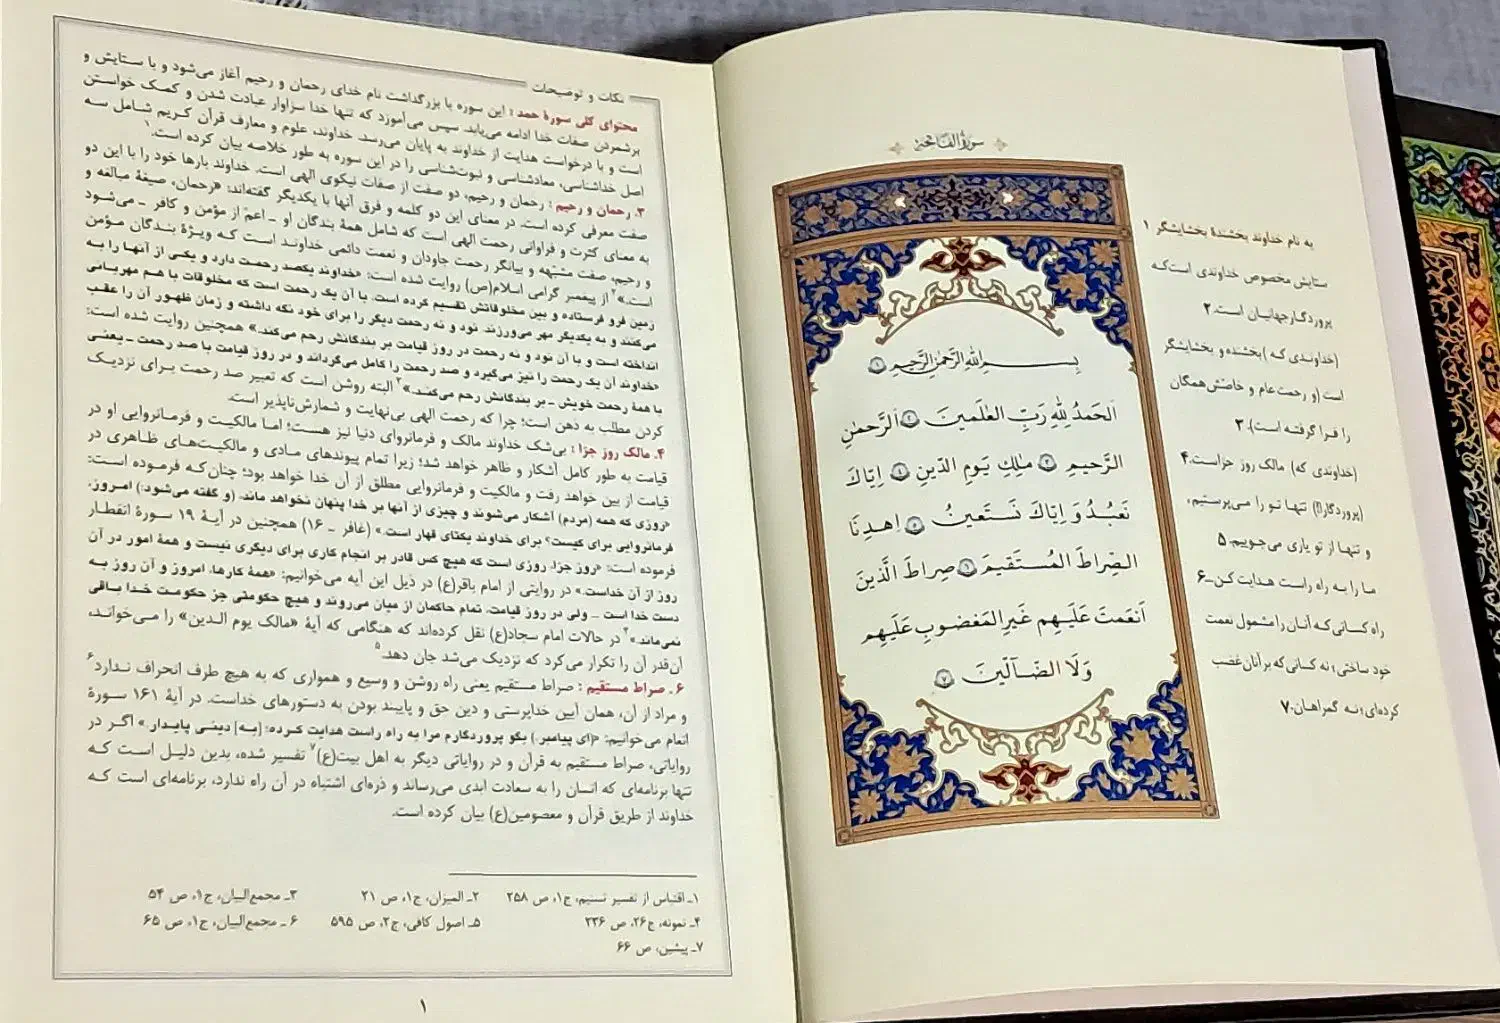 سورة الفاتحة
بِسْمِ اللهِ الرَّحْمٰنِ الرَّحِیمِ ۱
اَلحَمدُ لِلّٰهِ رَبِّ العٰلَمینَ ۲ اَلرَّحمٰنِ
الرَّحیمِ ۳ مٰلِكِ یَومِ الدّینِ ۴ اِیّاكَ
نَعبُدُ وَ اِیّاكَ نَستَعینُ ۵ اِهدِنَا
الصِّراطَ المُستَقیمَ ۶ صِراطَ الَّذینَ
اَنعَمتَ عَلَیهِم غَیرِ المَغضوبِ عَلَیهِم
وَلَا الضّآلّینَ ۷
به نام خداوند بخشندهٔ بخشایشگر ۱
ستایش مخصوص خداوندی است‌که
پروردگار جهانیان است.۲
(خداوندی که )بخشنده و بخشایشگر
است (و رحمت عام و خاصّش همگان
را فرا گرفته است).۳
(خداوندی که) مالک روز جزاست.۴
(پروردگارا!) تنها تو را می‌پرستیم،
و تنها از تو یاری می‌جوییم.۵
ما را به راه راست هدایت کن_۶
راه کسانی که آنان را مشمول نعمت
خود ساختی؛ نه کسانی که بر آنان غضب
کرده‌ای؛ و نه گمراهان.۷
نکات و توضیحات
محتوای کلی سورهٔ حمد : این سوره با بزرگداشت نام خدای رحمان و رحیم آغاز می‌شود و با ستایش و
برشمردن صفات خدا ادامه می‌یابد. سپس می‌آموزد که تنها خدا سزاوار عبادت شدن و کمک خواستن
است و با درخواست هدایت از خداوند به پایان می‌رسد. خداوند، علوم و معارف قرآن کریم شامل سه
اصل خداشناسی، معادشناسی و نبوت‌شناسی را در این سوره به طور خلاصه بیان کرده است.۱
۳. رحمان و رحیم : رحمان و رحیم، دو صفت از صفات نیکوی الهی است. خداوند بارها خود را با این دو
صفت معرفی کرده است. در معنای این دو کلمه و فرق آنها با یکدیگر گفته‌اند: «رحمان، صیغهٔ مبالغه و
به معنای کثرت و فراوانی رحمت الهی است که شامل همهٔ بندگان او ـ اعمّ از مؤمن و کافر ـ می‌شود
و رحیم، صفت مشبّهه و بیانگر رحمت جاودان و نعمت دائمی خداوند است که ویژهٔ بندگان مؤمن
است.»۲ از پیغمبر گرامی اسلام(ص) روایت شده است: «خداوند یکصد رحمت دارد و یکی از آنها را به
زمین فرو فرستاده و بین مخلوقاتش تقسیم کرده است. با آن یک رحمت است که مخلوقات با هم مهربانی
می‌کنند و به یکدیگر مهر می‌ورزند. نود و نه رحمت دیگر را برای خود نگه داشته و زمان ظهور آن را عقب
انداخته است و با آن نود و نه رحمت در روز قیامت بر بندگانش رحم می‌کند.» همچنین روایت شده است:
«خداوند آن یک رحمت را نیز می‌گیرد و صد رحمت را کامل می‌گرداند و در روز قیامت با صد رحمت ـ یعنی
با همهٔ رحمت خویش ـ بر بندگانش رحم می‌کند.»۳ البته روشن است که تعبیر صد رحمت برای نزدیک
کردن مطلب به ذهن است؛ چرا که رحمت الهی بی‌نهایت و شمارش‌ناپذیر است.
۴. مالک روز جزا : بی‌شک خداوند مالک و فرمانروای دنیا نیز هست؛ اما مالکیت و فرمانروایی او در
قیامت به طور کامل آشکار و ظاهر خواهد شد؛ زیرا تمام پیوندهای مادی و مالکیت‌های ظاهری در
قیامت از بین خواهد رفت و مالکیت و فرمانروایی مطلق از آن خدا خواهد بود؛ چنان‌که فرموده است:
«روزی که همه (مردم) آشکار می‌شوند و چیزی از آنها بر خدا پنهان نخواهد ماند. (و گفته می‌شود:) امروز،
فرمانروایی برای کیست؟ برای خداوند یکتای قهار است.» (غافر ـ ۱۶) همچنین در آیهٔ ۱۹ سورهٔ انفطار
فرموده است: «روز جزا، روزی است که هیچ کس قادر بر انجام کاری برای دیگری نیست و همهٔ امور در آن
روز از آن خداست.» در روایتی از امام باقر(ع) در ذیل این آیه می‌خوانیم: «همهٔ کارها، امروز و آن روز به
دست خدا است ... ولی در روز قیامت، تمام حاکمان از میان می‌روند و هیچ حکومتی جز حکومت خدا باقی
نمی‌ماند.»۴ در حالات امام سجاد(ع) نقل کرده‌اند که هنگامی که آیهٔ «مالک یوم الدین» را می‌خواند،
آن‌قدر آن را تکرار می‌کرد که نزدیک می‌شد جان دهد.۵
۶. صراط مستقیم : صراط مستقیم یعنی راه روشن و وسیع و همواری که به هیچ طرف انحراف ندارد۶
و مراد از آن، همان آیین خداپرستی و دین حق و پایبند بودن به دستورهای خداست. در آیهٔ ۱۶۱ سورهٔ
انعام می‌خوانیم: «(ای پیامبر،) بگو پروردگارم مرا به راه راست هدایت کرده: [به] دینی پایدار.» اگر در
روایاتی، صراط مستقیم به قرآن و در روایاتی دیگر به اهل بیت(ع)۷ تفسیر شده، بدین دلیل است که
تنها برنامه‌ای که انسان را به سعادت ابدی می‌رساند و ذره‌ای اشتباه در آن راه ندارد، برنامه‌ای است که
خداوند از طریق قرآن و معصومین(ع) بیان کرده است.
۱ـ اقتباس از تفسیر تسنیم، ج۱، ص ۲۵۸ ۲ـ المیزان، ج۱، ص ۲۱ ۳ـ مجمع‌البیان، ج۱، ص ۵۴
۴ـ نمونه، ج۲۶، ص ۲۳۶ ۵ـ اصول کافی، ج۲، ص ۵۹۵ ۶ ـ مجمع‌البیان، ج۱، ص ۶۵
۷ـ پیشین، ص ۶۶
۱